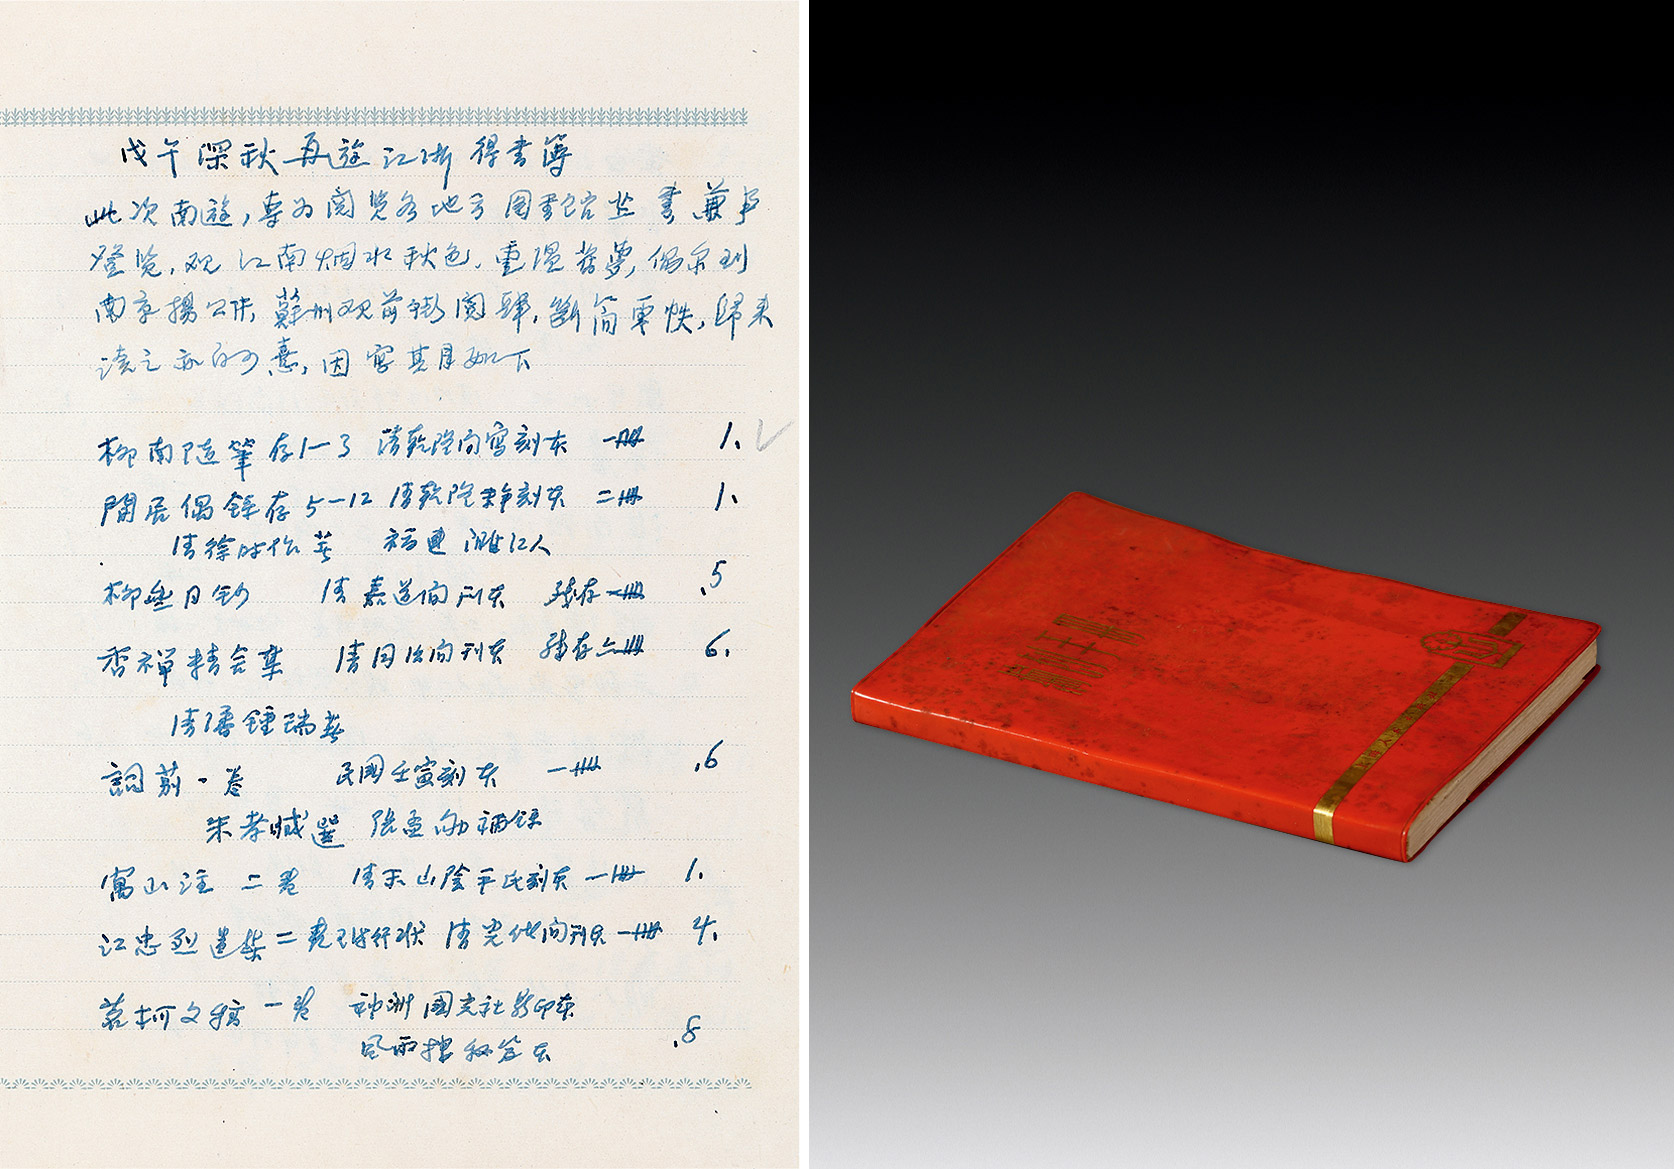 戊午深秋再遊江浙得書簿
此次南遊,專为閲覽各地方图書館 书兼事
登览,观江南烟水秋色,重温舊夢,偶尔到
南京楊公井,蘇州观前街閲肆,斷简零帙,歸来
读之亦自可憙,因写其目如下
柳南随筆存1—3 清乾隆间寫刻本 一册 1.
閒居偶錄存5—12 清乾隆 刻本 二册 1.
清徐时作著 福建 人
柳 日鈔 清嘉道间刊本 残存一册 .5
香禅精舍集 清同治间刊本 残存六册 6.
清潘鍾瑞著
詞莂一卷 民國壬寅刻本 一册 .6
朱孝臧選 張孟劬補錄
寓山注 二卷 清末山陰平氏刻本 一册 1.
江忠烈遺集二卷附行状 清光绪间刊本 一册 4.
慕柯文稿 一卷 神洲國光社影印本
風雨楼秘笈本 .8